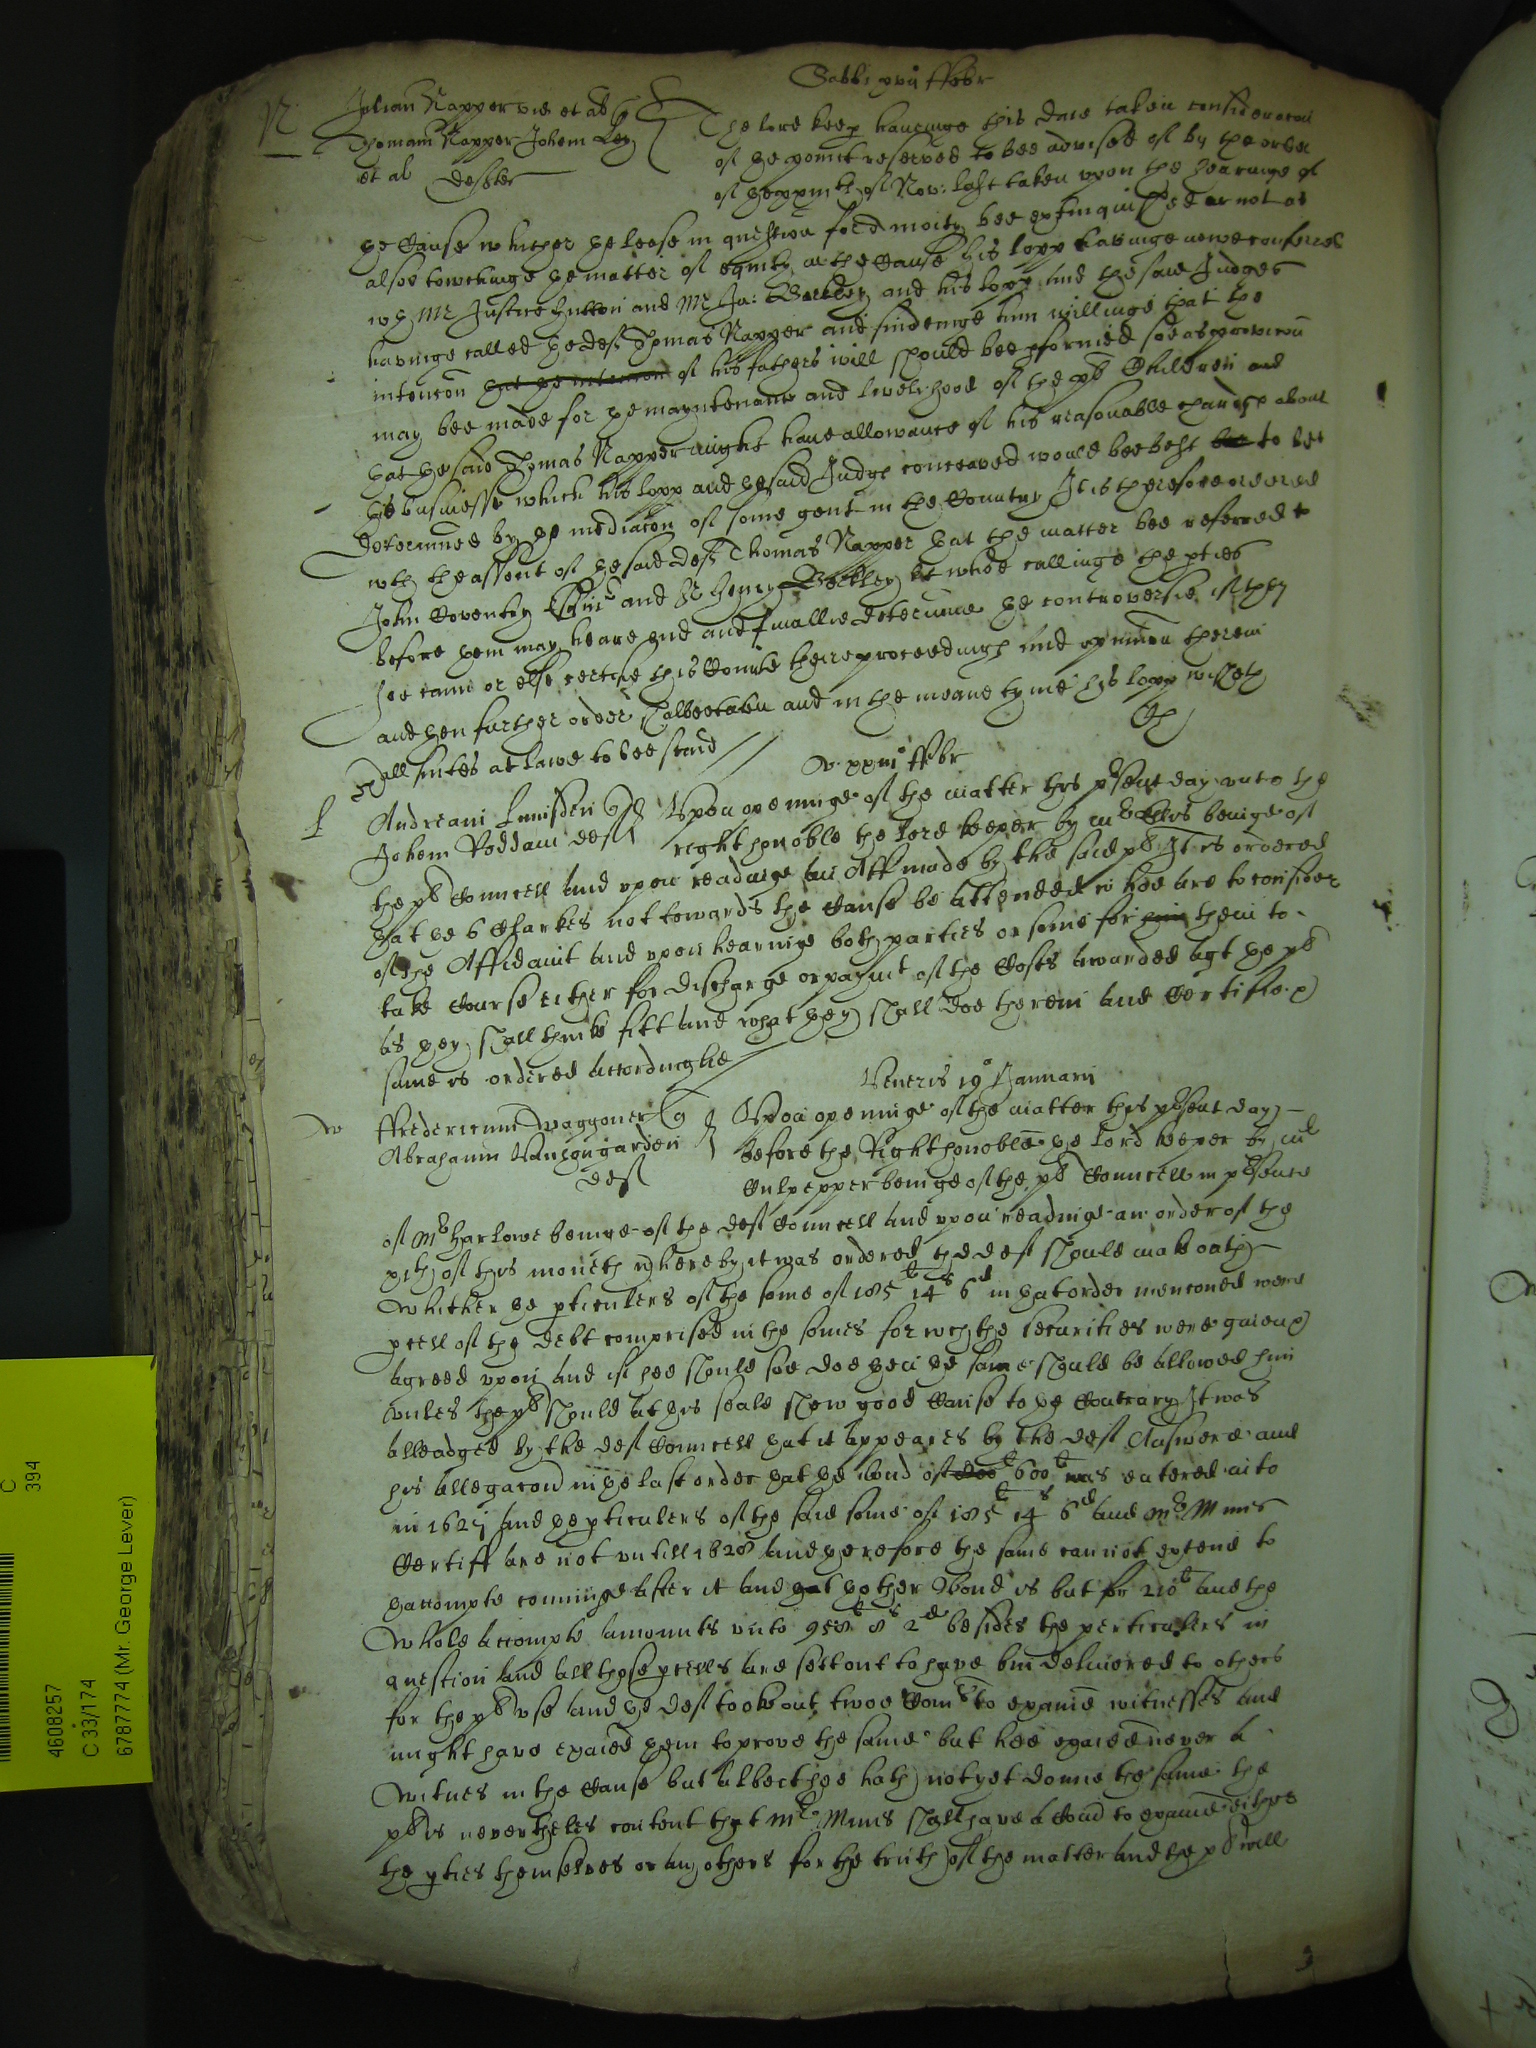 Sabbi xvii ffebr
N
Julian Napper vid et al
Thomam Napper Johem Ley
et al deftes
The lord keep havinge this daie taken consideracon
of ye point reserved to bee advised of by the order
of the xxviith of Nov: last taken upon the hearinge of
ye Cause whither ye lease in question for a moity bee extinquished or not as
alsoe towchinge ye matter of equity in the Cause his lopp havinge nowe conferred
wth Mr Justice Hutton and Mr Ju: Barkley and his lopp and the said Judges
havinge called ye deft Thomas Napper and findeinge him willinge that the
intencon yat ye intencon of his fathers will should bee pformed soe as provision
may bee made for ye mayntenance and livelihood of the plt Children and
yat ye said Thomas Napper might have allowance of his reasonable chardg about
ye businesse which his lopp and ye said Judges conceaved would bee best bee to bee
determined by ye mediacon of some gent in the Country It is therefore ordered
wth the assent of ye said deft Thomas Napper yat the matter bee referred to
John Coventry Esquir and Sr Henry Berkley kt whoe callinge the pties
before yem may heare end and finallie determine ye controversie if they
see cann or else certifie this Courte theire proceedings and opinion therein
and yen further order shalbee taken and in the meane tyme his lopp wisheth
all suites at lawe to bee staid
V. xxiii ffebr
L
Andream Lumsden qr
Johem Veddam deft
Upon openinge of the matter this psent day unto the
right honoble the lord keeper by mr Ellis beinge of
the plt Councell and upon readinge an Aff made by the said plt It is ordered
yat ye 6 Clarkes not towards the Cause be attended who are to consider
of the Affidavit and upon hearinge both parties or some for him them to
take Course either for discharge or paymt of the Costs awarded agt ye plt
as yey shall thinke fitt and what yey shall doe therein and Certifie ye
same is ordered accordinglie
Veneris 19o Januarii
W
ffredericum Waggoner qr
Abrahamum Vanhougarden
deft
Upon openinge of the matter this psent day
before the Right honoble ye lord keeper by mr
Culpepper beinge of the plt Councell in psence
of Mr Harlowe beinge of the deft Councell and upon readinge an order of the
xith of this moneth whereby it was ordered the deft should make oath
Whither ye pticulers of the some of 185l 14s 6d in yat order menconed were
pcell of the debt comprised in the somes for wch the securities were given
agreed upon and if hee should soe doe yen ye same should be allowed him
unles the plt should at his seale shew good Cause to ye Contrary It was
alleadged by the deft Councell yat it appeares by the deft Answere and
his allegacon in ye last order yat ye bond of 600l was entered into
in 1627 and ye pticulers of the said some of 185l 14s 6d and Mr Mines
Certiff are not untill 1628 and yerefore the same cannot extend to
yaccompte comminge after it and yat yother Bond is but for 210l and the
Whole accompte amounts unto 958l 8s 2d besides the perticulers in
question and all those pcells are sett out to have bin delivered to others
for the plt use and ye deft tooke out twoe Comrs to examine witnesses and
might have exaied yem to prove the same but hee exaied never a
Witnes in the Cause but albeit hee hath not yet donne the same the
plt is neverthelesse content that Mr Mines shall have a Comd to examine either
the pties themselves or any others for the truth of the matter and the plt will
4608257
C 33/174
6787774 (Mr. George Lever)
C
394